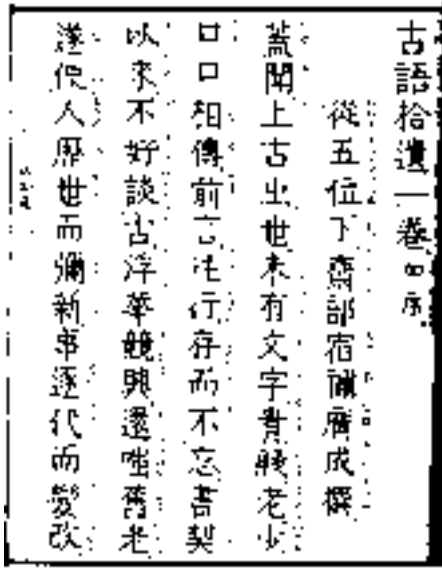 古語拾遺一卷加序
從五位下齋部宿禰廣成撰
蓋聞上古之世未有文字貴賤老少
口口相傳前言往行存而不忘書契
以來不好談古浮華競興還嗤舊老
遂使人歷世而彌新事逐代而變改